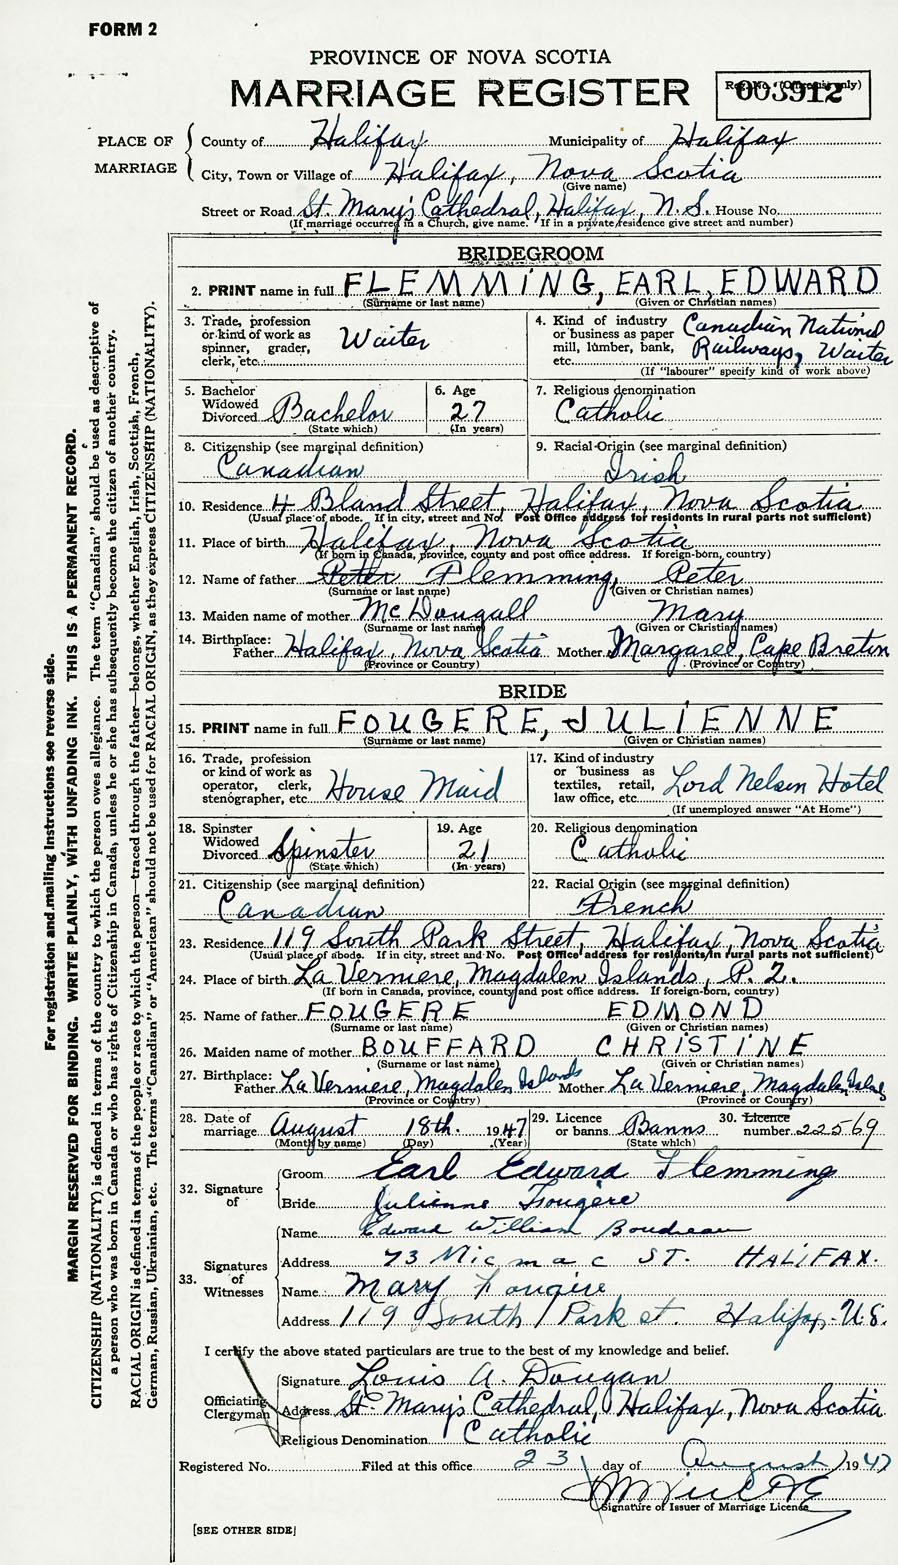 FORM 2
PROVINCE OF NOVA SCOTIA
MARRIAGE REGISTER
Reg. No. (Office use only)
003912
PLACE OF MARRIAGE
County of Halifax Municipality of Halifax
City, Town or Village of Halifax, Nova Scotia
(Give name)
Street or Road St. Mary's Cathedral, Halifax, N.S. House No.
(If marriage occurred in a Church, give name. If in a private residence give street and number)
BRIDEGROOM
2. PRINT name in full FLEMMING, EARL EDWARD
(Surname or last name) (Given or Christian names)
3. Trade, profession or kind of work as spinner, grader, clerk, etc. Waiter
4. Kind of industry or business as paper mill, lumber, bank, etc. Canadian National Railways, Waiter
(If "labourer" specify kind of work above)
5. Bachelor Widowed Divorced Bachelor
(State which)
6. Age 27
(In years)
7. Religious denomination Catholic
8. Citizenship (see marginal definition) Canadian
9. Racial Origin (see marginal definition) Irish
10. Residence 4 Bland Street, Halifax, Nova Scotia
(Usual place of abode. If in city, street and No. Post Office address for residents in rural parts not sufficient)
11. Place of birth Halifax, Nova Scotia
(If born in Canada, province, county and post office address. If foreign-born, country)
12. Name of father Peter Flemming, Peter
(Surname or last name) (Given or Christian names)
13. Maiden name of mother McDougall Mary
(Surname or last name) (Given or Christian names)
14. Birthplace: Father Halifax, Nova Scotia Mother Margaree, Cape Breton
(Province or Country) (Province or Country)
BRIDE
15. PRINT name in full FOUGERE, JULIENNE
(Surname or last name) (Given or Christian names)
16. Trade, profession or kind of work as operator, clerk, stenographer, etc House Maid
17. Kind of industry or business as textiles, retail, law office, etc. Lord Nelson Hotel
(If unemployed answer "At Home")
18. Spinster Widowed Divorced Spinster
(State which)
19. Age 21
(In years)
20. Religious denomination Catholic
21. Citizenship (see marginal definition) Canadian
22. Racial Origin (see marginal definition) French
23. Residence 119 South Park Street, Halifax, Nova Scotia
(Usual place of abode. If in city, street and No. Post Office address for residents in rural parts not sufficient)
24. Place of birth La Verniere, Magdalen Islands, P.Q.
(If born in Canada, province, county and post office address. If foreign-born, country)
25. Name of father FOUGERE EDMOND
(Surname or last name) (Given or Christian names)
26. Maiden name of mother BOUFFARD CHRISTINE
(Surname or last name) (Given or Christian names)
27. Birthplace: Father La Verniere, Magdalen Islands Mother La Verniere, Magdalen Islns
(Province or Country) (Province or Country)
28. Date of marriage August 18th. 1947
(Month by name) (Day) (Year)
29. Licence or banns Banns
(State which)
30. Licence number 22569
32. Signature of
Groom Earl Edward Flemming
Bride Julienne Fougère
33. Signatures of Witnesses
Name Edward William Boudreau
Address 73 Micmac ST. HALIFAX.
Name Mary Fougère
Address 119 South Park st. Halifax. N.S.
I certify the above stated particulars are true to the best of my knowledge and belief.
Officiating Clergyman
Signature Louis A. Dougan
Address St. Mary's Cathedral, Halifax, Nova Scotia
Religious Denomination Catholic
Registered No. Filed at this office 23 day of August 1947
Signature of Issuer of Marriage Licence
[SEE OTHER SIDE]
For registration and mailing instructions see reverse side.
MARGIN RESERVED FOR BINDING. WRITE PLAINLY, WITH UNFADING INK. THIS IS A PERMANENT RECORD.
CITIZENSHIP (NATIONALITY) is defined in terms of the country to which the person owes allegiance. The term "Canadian" should be used as descriptive of
a person who was born in Canada or who has rights of Citizenship in Canada, unless he or she has subsequently become the citizen of another country.
RACIAL ORIGIN is defined in terms of the people or race to which the person—traced through the father—belongs, whether English, Irish, Scottish, French,
German, Russian, Ukrainian, etc. The terms "Canadian" or "American" should not be used for RACIAL ORIGIN, as they express CITIZENSHIP (NATIONALITY).